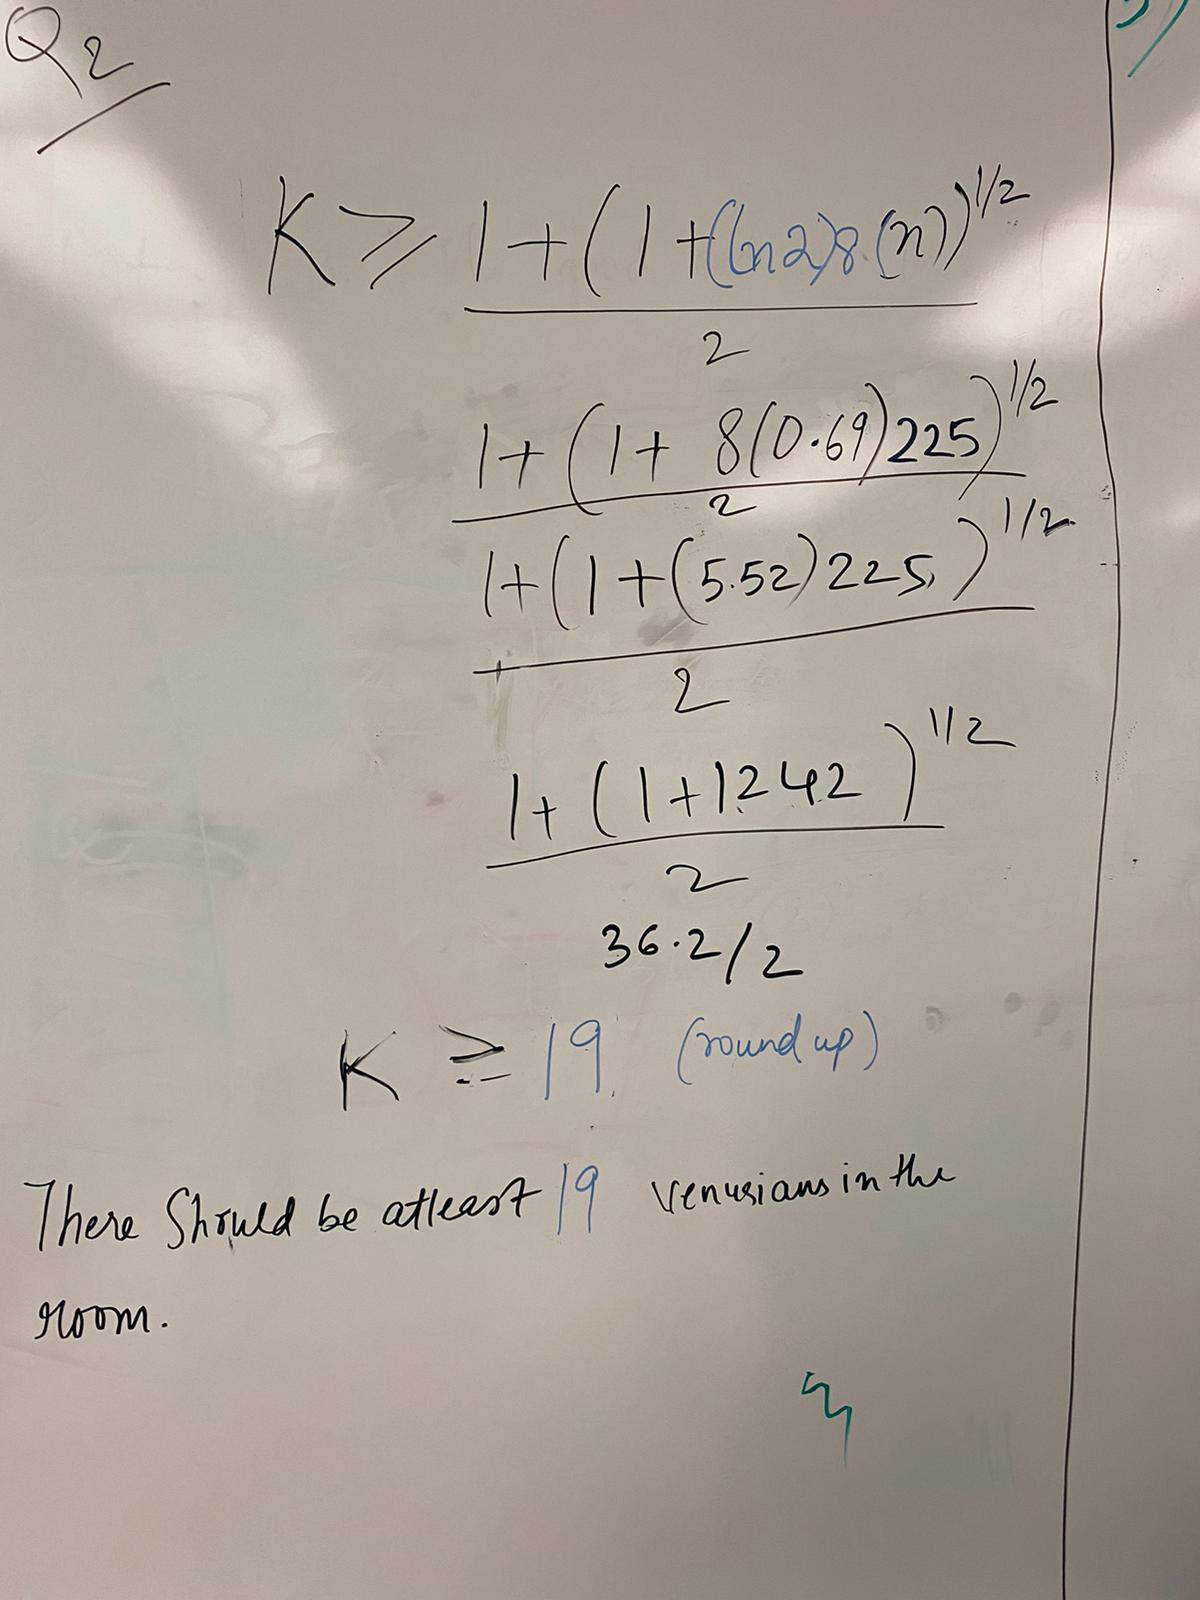 Q2
K ≥ 1+(1+(ln2)8(n))^1/2
2
1+(1+ 8(0.69)225)^1/2
2
1+(1+(5.52)225)^1/2
2
1+(1+1242)^1/2
2
36.2/2
K ≥ 19 (round up)
There Should be atleast 19 Venusians in the
room.